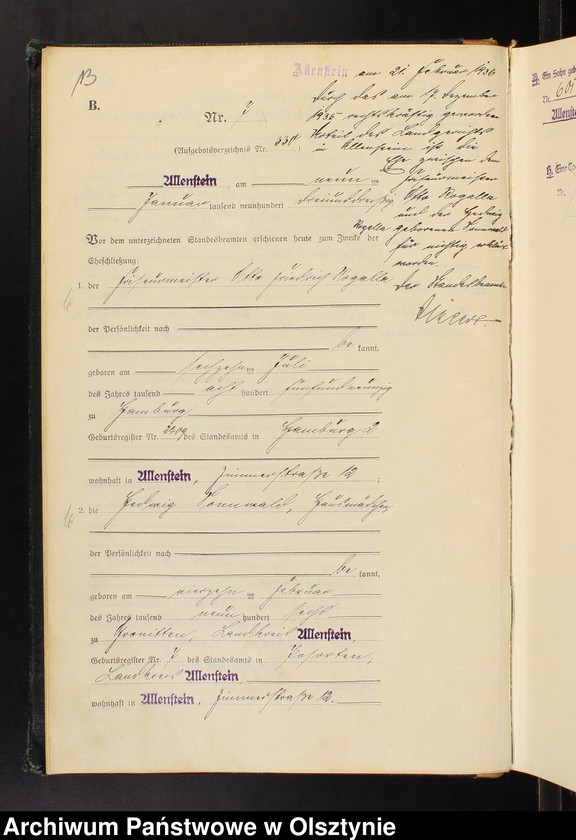 B.
Nr. 7
(Aufgebotsverzeichnis Nr. 330
Allenstein, am neun ten
Januar tausend neunhundert dreiunddreißig
Vor dem unterzeichneten Standesbeamten erschienen heute zum Zwecke der
Eheschließung:
1. der Friseurmeister Otto Friedrich Rogalla
der Persönlichkeit nach
be kannt,
geboren am sechzehn ten Juli
des Jahres tausend acht hundert fünfundneunzig
zu Hamburg
Geburtsregister Nr. des Standesamts in Hamburg 2
wohnhaft in Allenstein, Zimmerstraße 12 ;
2. die Hedwig Hausmädchen
der Persönlichkeit nach
be kannt,
geboren am vierzehn ten Februar
des Jahres tausend neun hundert sechs
zu Gronitten, Landkreis Allenstein
Geburtsregister Nr. 7 des Standesamts in
Landkreis Allenstein,
wohnhaft in Allenstein, Zimmerstraße 12.
Allenstein am 21. Februar 1936
Durch das am 17. Dezember
1935 rechtskräftig gewordene
Urteil des Landgerichts
in Allenstein ist die
Ehe zwischen dem
Friseurmeister
Otto Rogalla
und der Hedwig
Rogalla geborenen
für nichtig erklärt
worden.
Der Standesbeamte
Archiwum Państwowe w Olsztynie